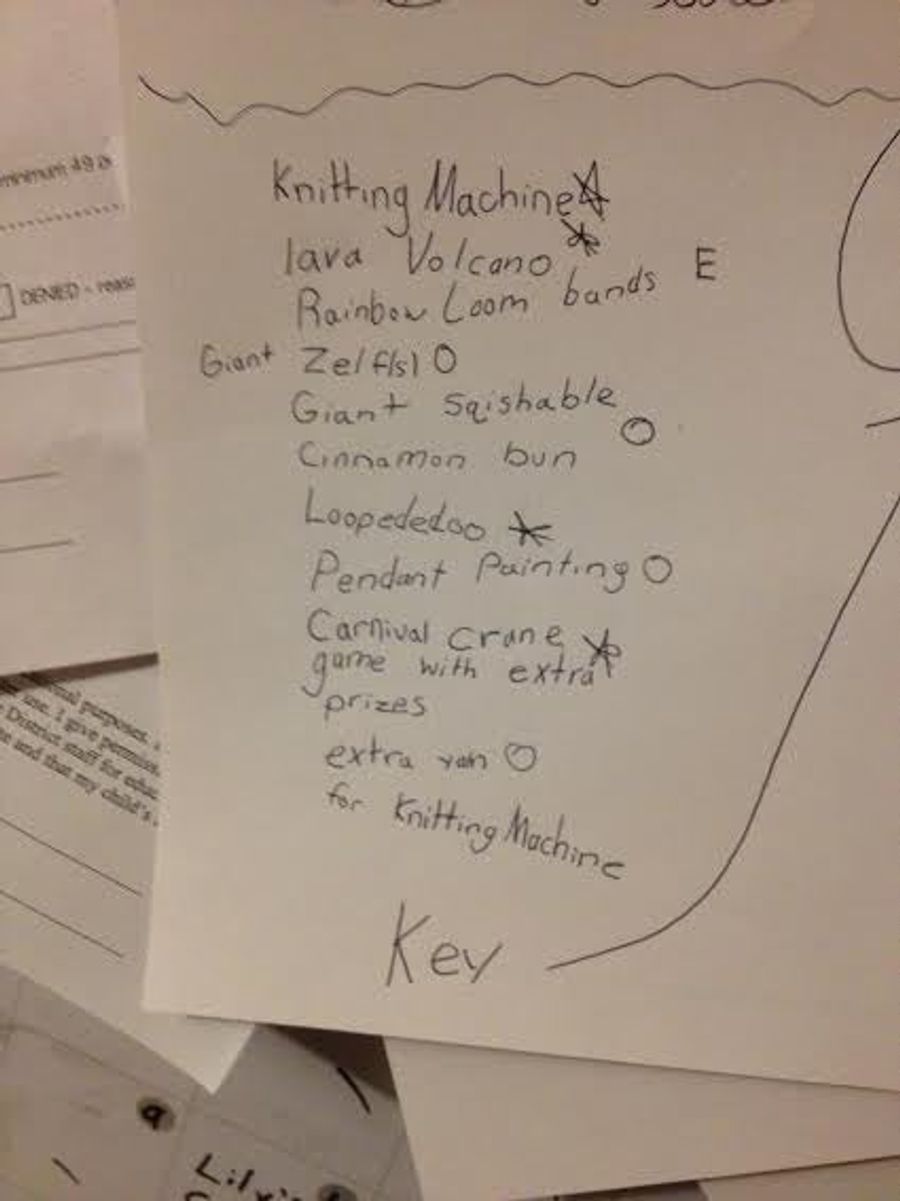 Knitting Machine
lava Volcano
E
Rainbow Loom bands
Giant Zelf(s)
Giant Sqishable
Cinnamon bun
Loopededoo
Pendant Painting
Carnival Crane
game with extra
prizes
extra
for Knitting Machine
Key
minimum 49
DENIED - reas
purposes.
use. I give permiss
District staff for educ
and that my child's
a
Lily's